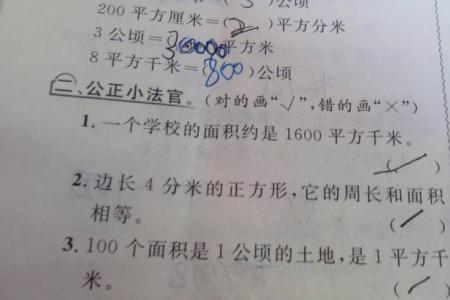 (3)公顷
200平方厘米=(2)平方分米
3公顷=30000平方米
8平方千米=(800)公顷
二、公正小法官。(对的画“√”,错的画“×”)
1.一个学校的面积约是1600平方千米。
(✓)
2.边长4分米的正方形,它的周长和面积
相等。(✓)
3.100个面积是1公顷的土地,是1平方千
米。(✓)